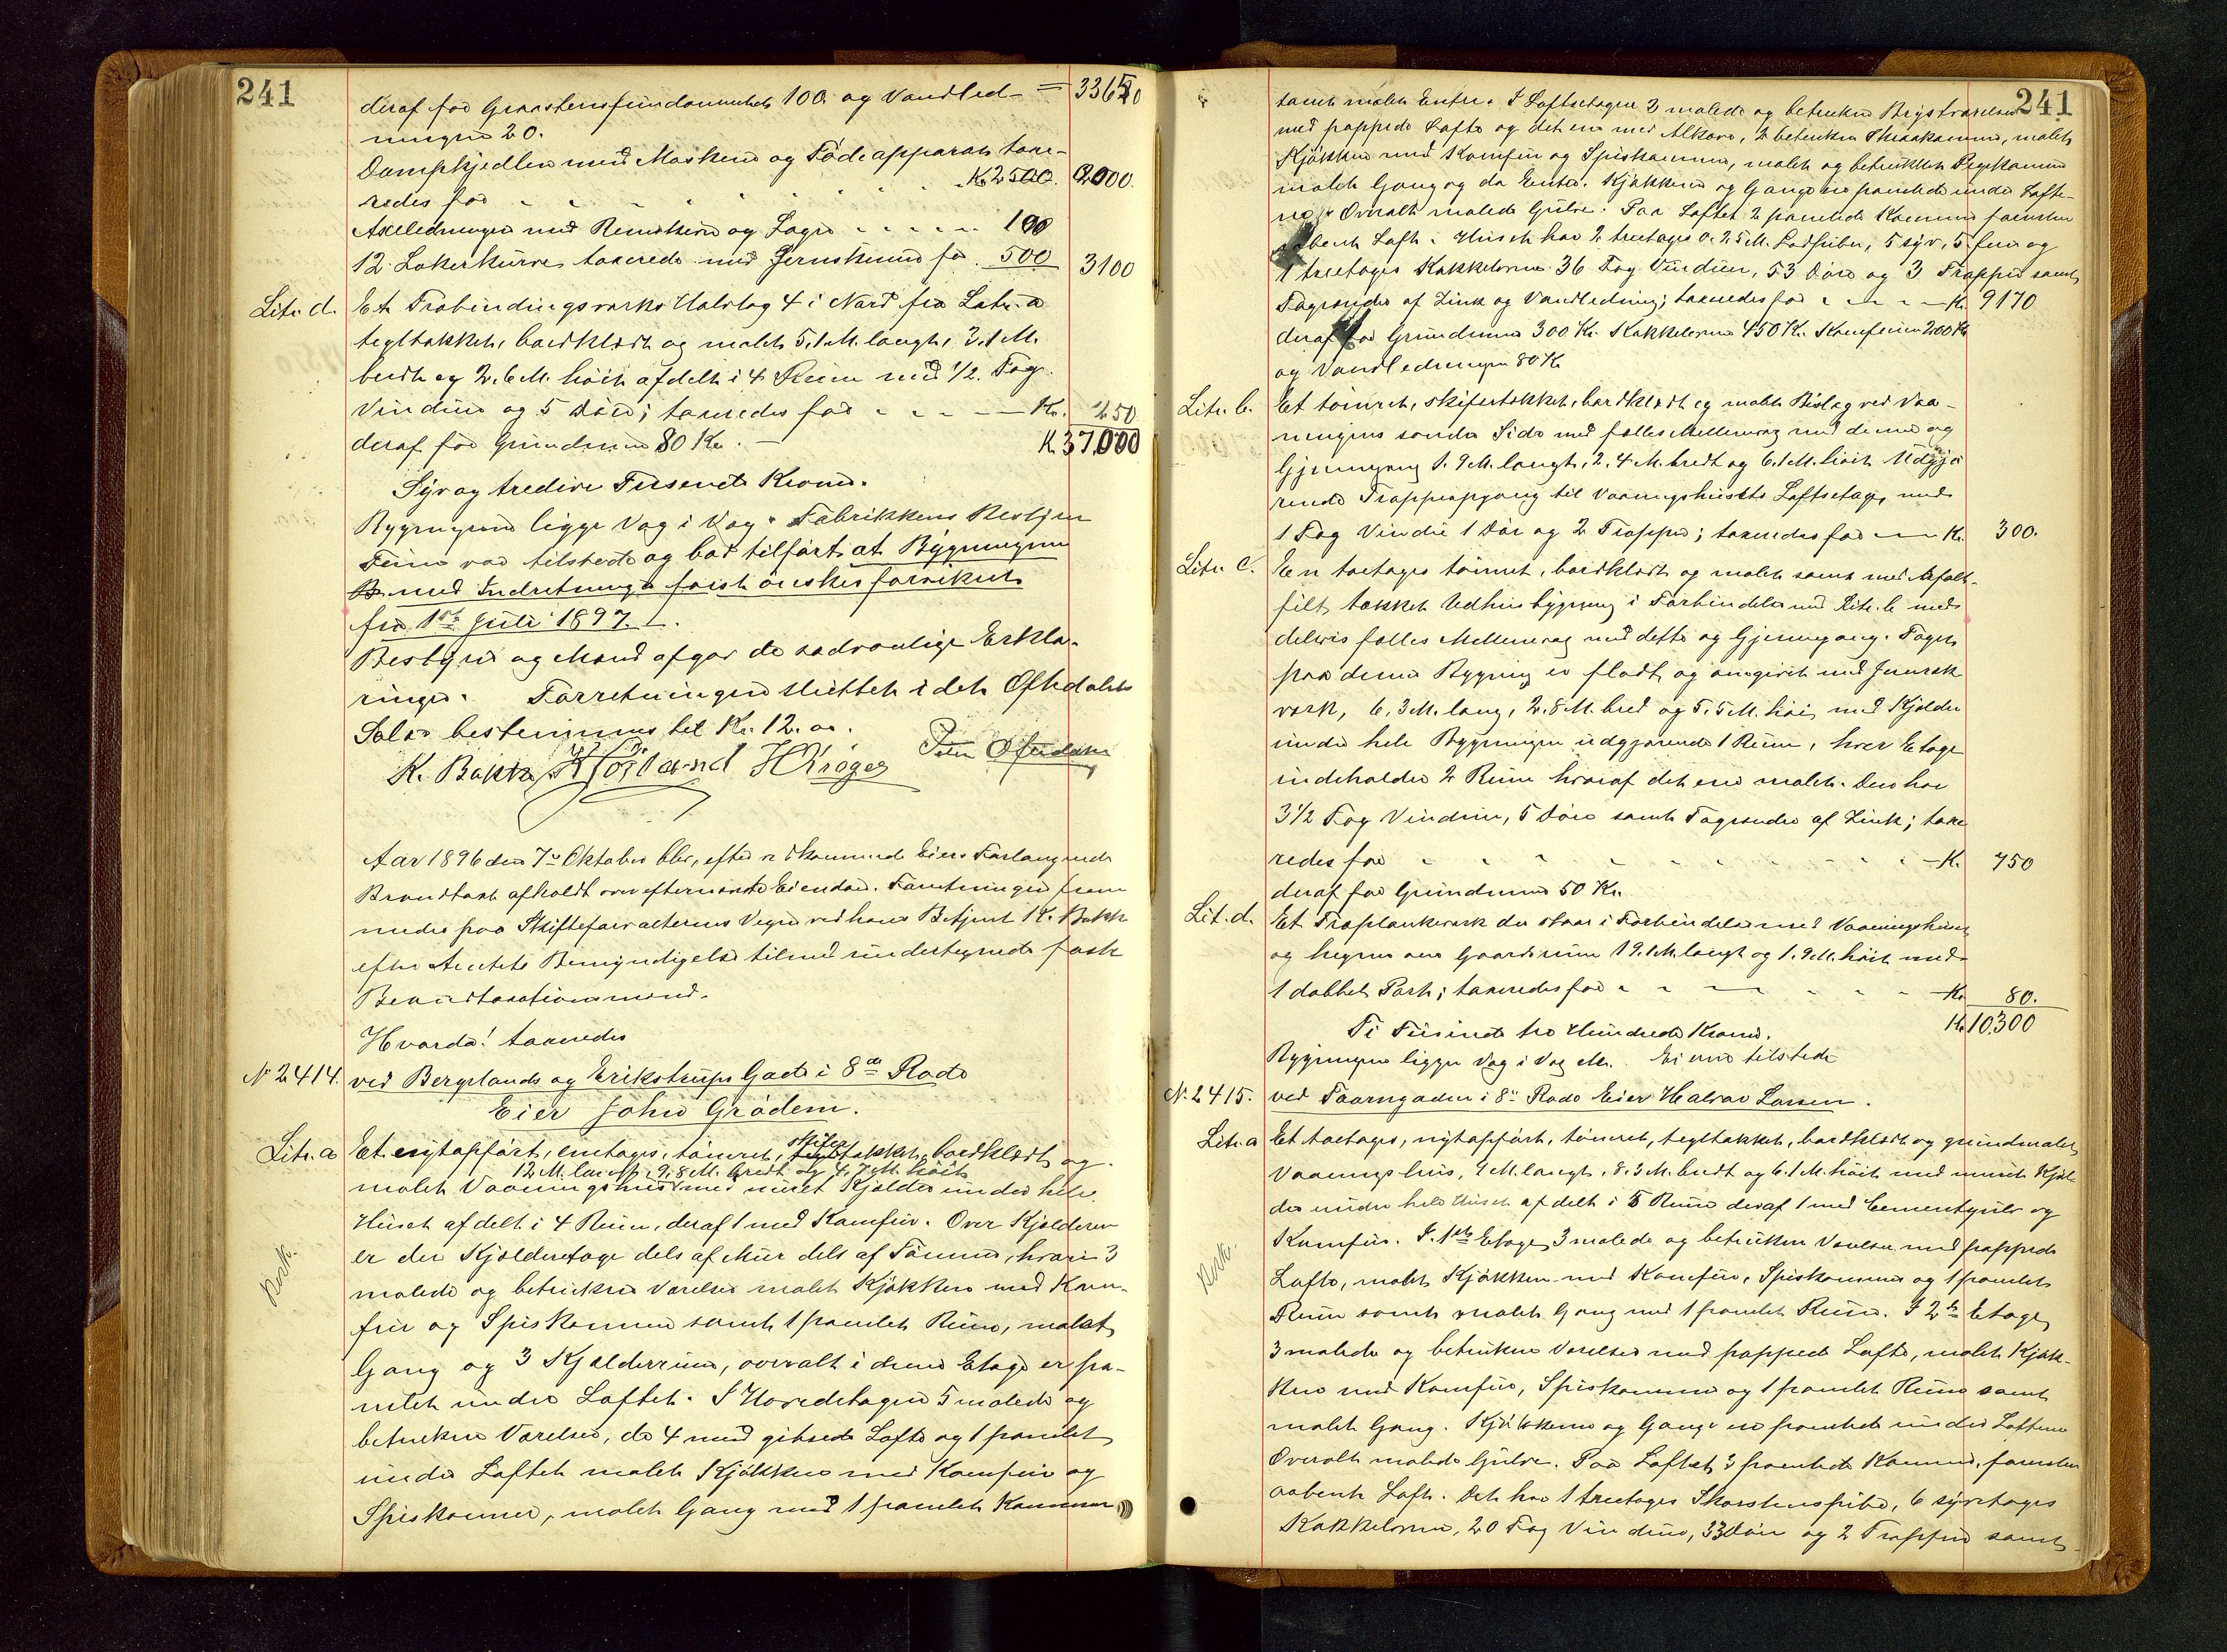 241
deraf for Graastensfundamentet 100 og Vandled- = 33650
ningen 20.
Dampkjedlen med Maskine og Födeapparat taxe-
redes for - - - - - Kr 2500. 2000.
Axelledninger med Remskiver og Lagre - - - - - 100
12 Lokerkurve taxerede med Jernskinner for 500 3100
Litr. d. Et Træbindingsværks Halvtag 4 i Nord fra Litr. a
tegltækket, bordklædt og malet 5,1 M. langt, 3,1 M.
bredt og 2,6 M. höit afdelt i 4 Rum med 1/2 Fag
Vindue og 5 Döre; taxeredes for - - - - Kr. 250
deraf for Grundmur 80 Kr. - K 37,000
Syv og tredive Tusende Kroner.
Bygningerne ligge Væg i Væg. Fabrikkens Bestyrer
var tilstede og bad tilført at Bygningerne
B med Indretninger først önskes forsikret
fra 1ste Juli 1897.
Bestyrer og Mænd afgav de sædvanlige Erklæ-
ringer. Forretningen sluttet i det Oftedalske
Salær bestemmes til Kr. 12.00.
K. Bakk H Kröger
Aar 1896 den 7de Oktober blev, efter vedkommende Eiers Forlangende
Brandtaxt afholdt over efternævnte Eiendom. Forretningen frem-
medes paa Skifteforvalterens Vegne ved hans Betjent K. Bakk
efter Amtets Bemyndigelse tilmed undertegnede faste
Brandtaxationsmænd.
Hvorda! taxeredes
No 2414. ved Bergelands og Erikstrups Gade i 8de Rode
Eier John Grödem.
Litr. a Et nytopfört, enetages, tömret, skifertækket, bordklædt og
12 M. langt, 9,8 M. bredt og 4,7 M. höit
malet Vaaningshus med muret Kjelder under hele
Huset afdelt i 4 Rum, deraf 1 med Komfur. Over Kjelderen
er der Kjelderetage dels af Mur dels af Tömmer, hvori 3
malede og betrukne Værelser malet Kjökken med Kom-
fur og Spiskammer samt 1 panelet Rum, malet
Gang og 3 Kjelderrum, overalt i denne Etage er pa-
nelet under Loftet. I Hovedetagen 5 malede og
betrukne Værelser, de 4 med gibsede Lofte og 1 panelet
under Loftet malet Kjökken med Komfur og
Spiskammer, malet Gang med 1 panelet Kammer
241
samt malet Entre. I Loftsetagen 2 malede og betrukne Kvistværelser
med pappede Lofte og det ene med Alkove, 2 betrukne Skraakammere, malet
Kjökken med Komfur og Spiskammer, malet og betrukket Pigekammer
malet Gang og do Entre. Kjökkener og Gange ere panelede under Lofte-
ne. Overalt malede Gulve. Paa Loftet 2 panelede Kammere forresten
aabent Loft. Huset har 2 treetages 0.25 M. Ladpiber, 5 syv, 5 fem og
1 treetages Kakkelovne 36 Fag Vinduer, 53 Döre og 3 Trapper samt
Tagrender af Zink og Vandledning; taxeredes for - - - - Kr. 9170
deraf for Grundmur 300 Kr. Kakkelovne 450 Kr. Komfurer 200 Kr
og Vandledningen 80 Kr
Litr. b. Et tömret, skifertækket, bordklædt og malet Bislag ved Vaa-
ningens söndre Side med fælles Mellemvæg med denne og
Gjennemgang 1.9 M. langt, 2,4 M. bredt og 6.1 M. höit Udgjö-
rende Trappeopgang til Vaaningshusets Loftsetage, med
1 Fag Vindue 1 Dör og 2 Trapper; taxeredes for - - Kr. 300.
Litr. C. En toetages tömret, bordklædt og malet samt med Asfalt-
filt tækket Udhusbygning i Forbindelse med Litr. b med
delvis fælles Mellemvæg med dette og Gjennemgang. Taget
paa denne Bygning er fladt og omgivet med Jernræk-
værk, 6,3 M. lang, 2,8 M. bred og 5,5 M. höi, med Kjelder
under hele Bygningen udgjörende 1 Rum, hver Etage
indeholder 2 Rum hvoraf det ene malet. Den har
3 1/2 Fag Vinduer, 5 Döre samt Tagrender af Zink; taxe-
redes for - - - - - - - - Kr. 750
deraf for Grundmur 50 Kr.
Lit. d. Et Træplankeværk der staar i Forbindelse med Vaaningshuset
og hegner om Gaardsrum 19.1 M. langt og 1.9 M. höit med
1 dobbelt Port; taxeredes for - - - - - - Kr 80.
Ti Tusinde tre Hundrede Kroner. Kr. 10300
Bygningerne ligger Væg i Væg. Eieren tilstede
No. 2415. ved Taarngaden i 8de Rode Eier Halvor Larsen.
Litr. a Et toetages, nytopfört, tömret, tegltækket, bordklædt og grundmalet
Vaaningshus, 9 M. langt, 8.3 M. bredt og 6.1 M. höit med muret Kjel-
der under hele Huset afdelt i 5 Rum deraf 1 med Cementgulv og
Komfur. I 1ste Etage 3 malede og betrukne Værelser med pappede
Lofte, malet Kjökken med Komfur, Spiskammer og 1 panelet
Rum samt malet Gang med 1 panelet Rum. I 2de Etage
3 malede og betrukne Værelser med pappede Lofte, malet Kjök-
ken med Komfur, Spiskammer og 1 panelet Rum samt
malet Gang. Kjökkener og Gange ere panelede under Loftene
Overalt malede Gulve. Paa Loftet 3 panelede Kammere, forresten
aabent Loft. Det har 1 treetages Skorstenspibe, 6 syvetages
Kakkelovne, 20 Fag Vinduer, 33 Döre og 2 Trapper samt